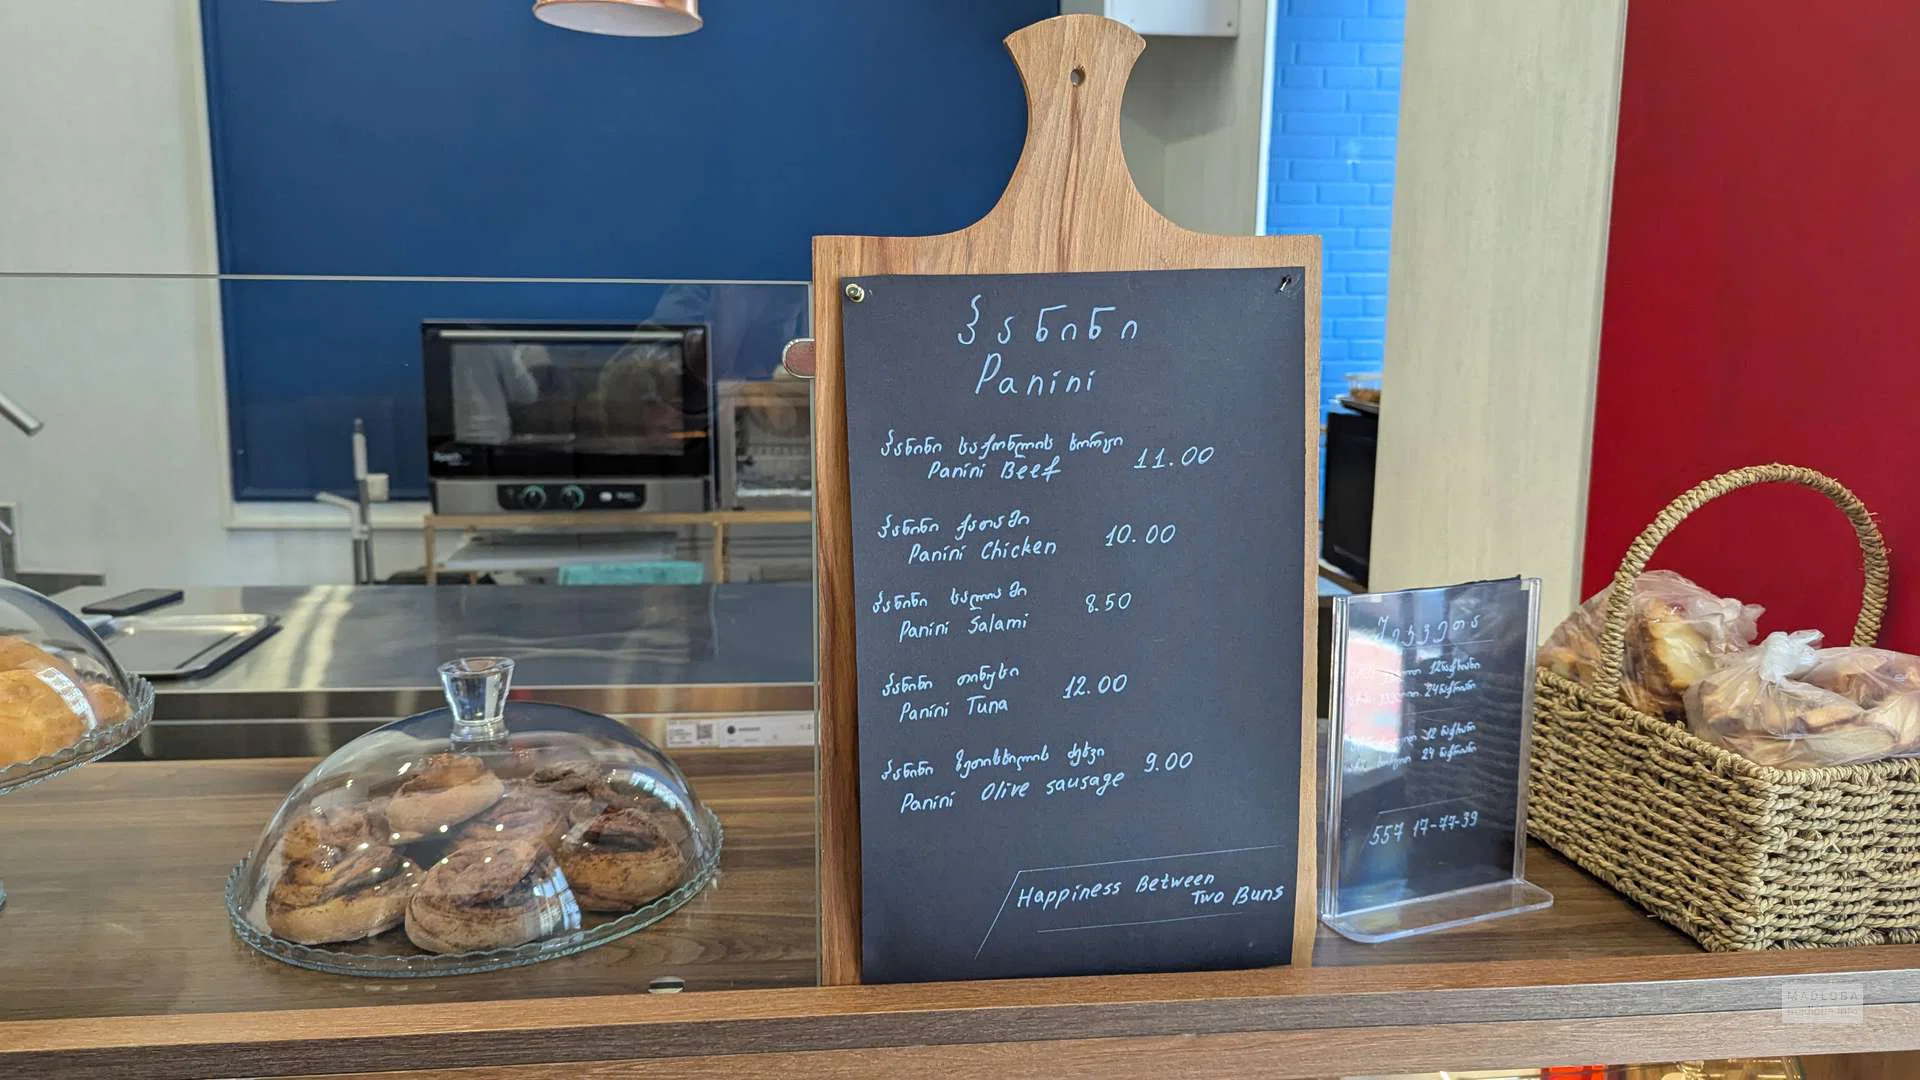 პანინი
Panini
პანინი საქონლის ხორცი 11.00
Panini Beef
პანინი ქათამი 10.00
Panini Chicken
პანინი სალიამი 8.50
Panini Salami
პანინი თინუსი 12.00
Panini Tuna
პანინი ზეთისხილის ძეხვი 9.00
Panini Olive sausage
Happiness Between
Two Buns
შეკვეთა
557 17-77-39
MADLOBA
madloba.info